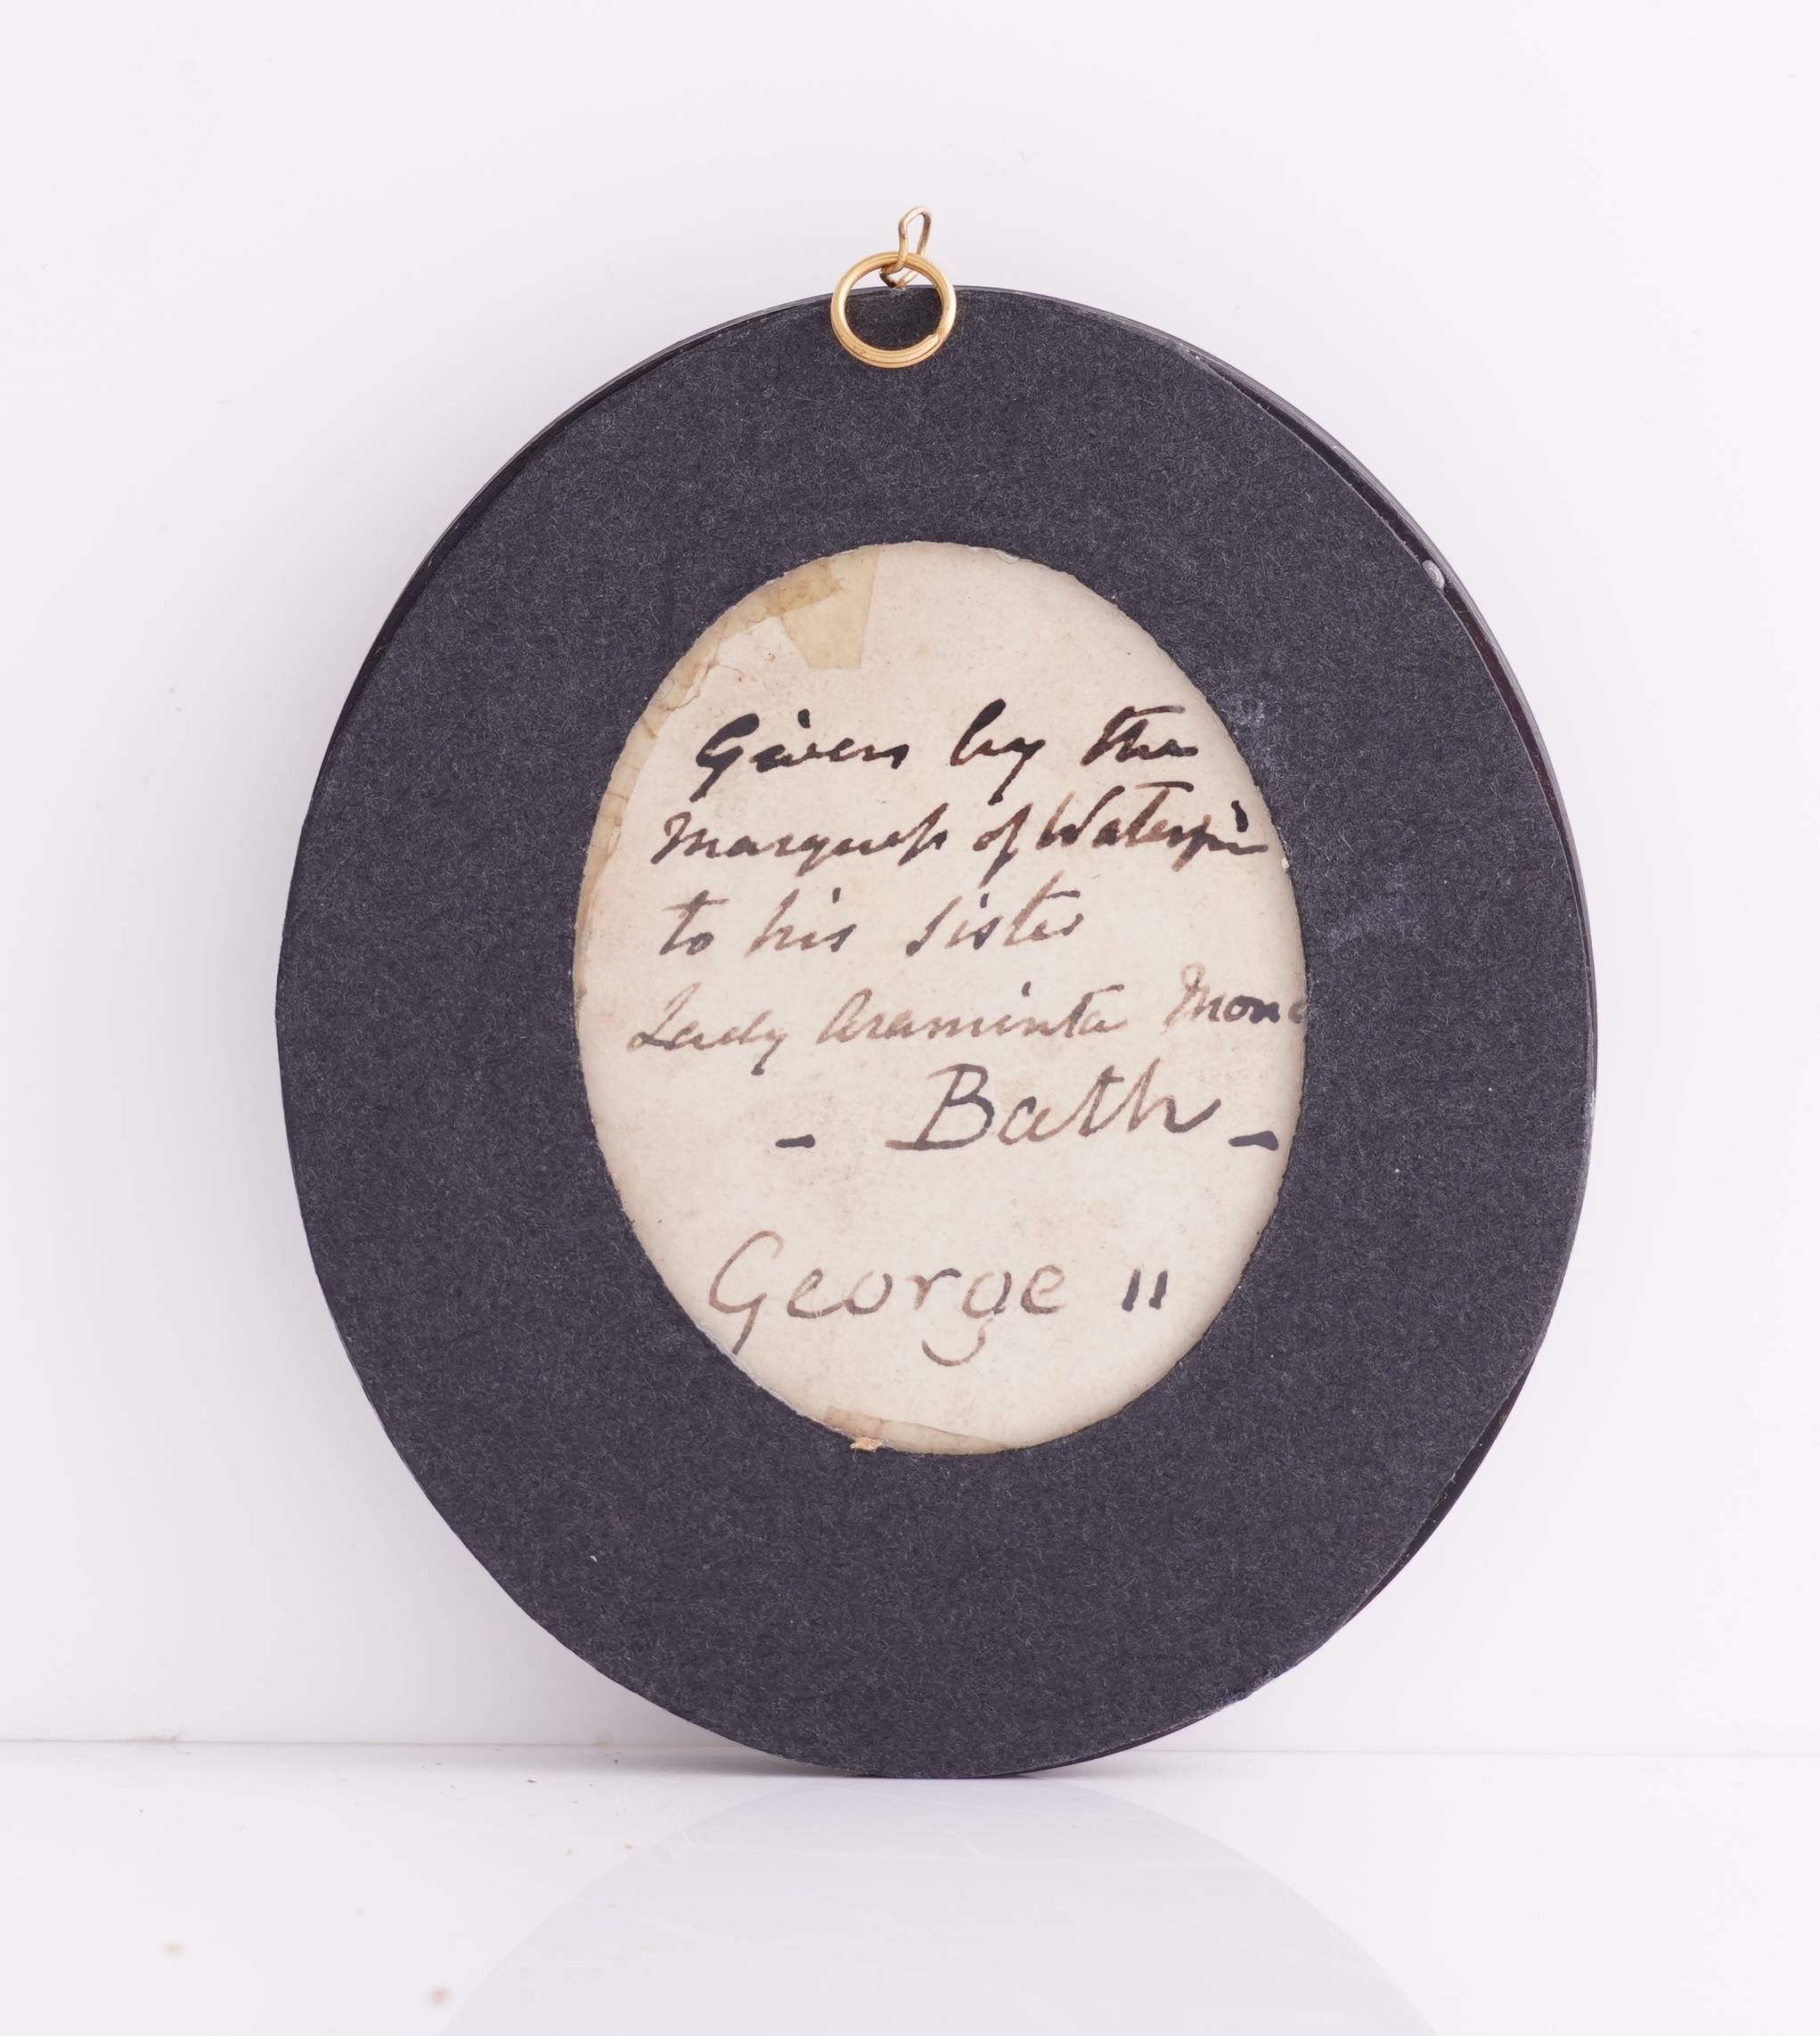 Given by the
Marquess of Waterf
to his sister
Lady Araminta Mon
- Bath -
George II